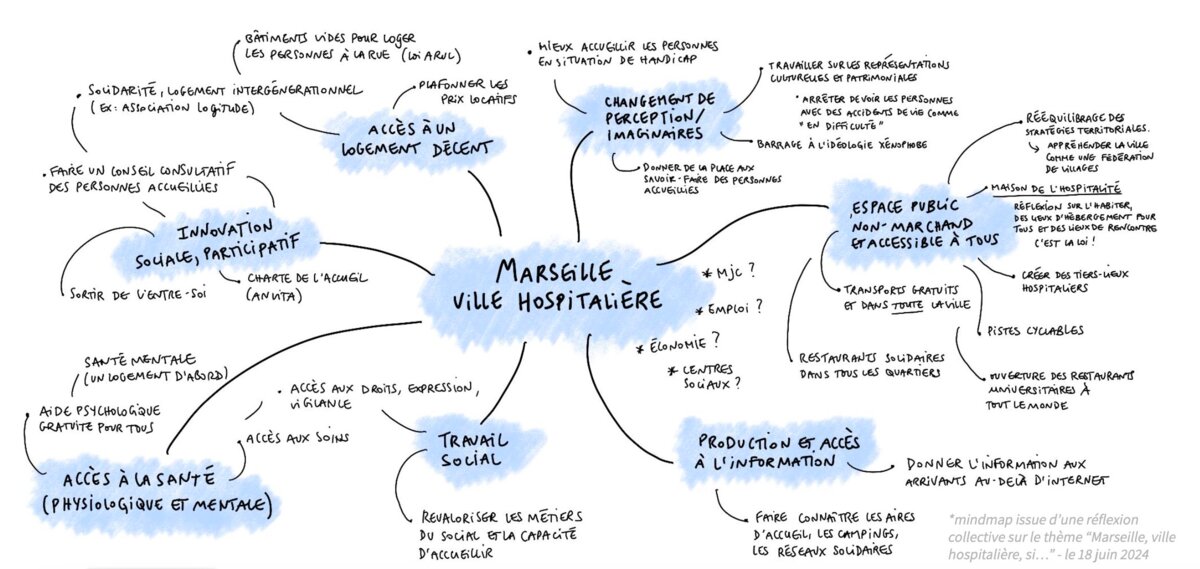 MARSEILLE
VILLE HOSPITALIÈRE
* MJC ?
* EMPLOI ?
* ÉCONOMIE ?
* CENTRES
SOCIAUX ?
ACCÈS À UN
LOGEMENT DÉCENT
PLAFONNER LES
PRIX LOCATIFS
BÂTIMENTS VIDES POUR LOGER
LES PERSONNES À LA RUE (LOI ARUL)
SOLIDARITÉ, LOGEMENT INTERGÉNÉRATIONNEL
(EX: ASSOCIATION LOGITUDE)
FAIRE UN CONSEIL CONSULTATIF
DES PERSONNES ACCUEILLIES
INNOVATION
SOCIALE, PARTICIPATIF
SORTIR DE L'ENTRE-SOI
CHARTE DE L'ACCUEIL
(ANVITA)
CHANGEMENT DE
PERCEPTION/
IMAGINAIRES
MIEUX ACCUEILLIR LES PERSONNES
EN SITUATION DE HANDICAP
TRAVAILLER SUR LES REPRÉSENTATIONS
CULTURELLES ET PATRIMONIALES
* ARRÊTER DE VOIR LES PERSONNES
AVEC DES ACCIDENTS DE VIE COMME
"EN DIFFICULTÉ"
BARRAGE À L'IDÉOLOGIE XÉNOPHOBE
DONNER DE LA PLACE AUX
SAVOIR-FAIRE DES PERSONNES
ACCUEILLIES
ESPACE PUBLIC
NON-MARCHAND
ET ACCESSIBLE À TOUS
RÉÉQUILIBRAGE DES
STRATÉGIES TERRITORIALES.
→ APPRÉHENDER LA VILLE
COMME UNE FÉDÉRATION
DE VILLAGES
MAISON DE L'HOSPITALITÉ
RÉFLEXION SUR L'HABITER,
DES LIEUX D'HÉBERGEMENT POUR
TOUS ET DES LIEUX DE RENCONTRE
C'EST LA LOI !
CRÉER DES TIERS-LIEUX
HOSPITALIERS
PISTES CYCLABLES
OUVERTURE DES RESTAURANTS
UNIVERSITAIRES À
TOUT LE MONDE
TRANSPORTS GRATUITS
ET DANS TOUTE LA VILLE
RESTAURANTS SOLIDAIRES
DANS TOUS LES QUARTIERS
PRODUCTION ET ACCÈS
À L'INFORMATION
DONNER L'INFORMATION AUX
ARRIVANTS AU-DELÀ D'INTERNET
FAIRE CONNAÎTRE LES AIRES
D'ACCUEIL, LES CAMPINGS,
LES RÉSEAUX SOLIDAIRES
TRAVAIL
SOCIAL
ACCÈS AUX DROITS, EXPRESSION,
VIGILANCE
REVALORISER LES MÉTIERS
DU SOCIAL ET LA CAPACITÉ
D'ACCUEILLIR
ACCÈS À LA SANTÉ
(PHYSIOLOGIQUE ET MENTALE)
ACCÈS AUX SOINS
SANTÉ MENTALE
(UN LOGEMENT D'ABORD)
AIDE PSYCHOLOGIQUE
GRATUITE POUR TOUS
*mindmap issue d'une réflexion
collective sur le thème "Marseille, ville
hospitalière, si…" - le 18 juin 2024